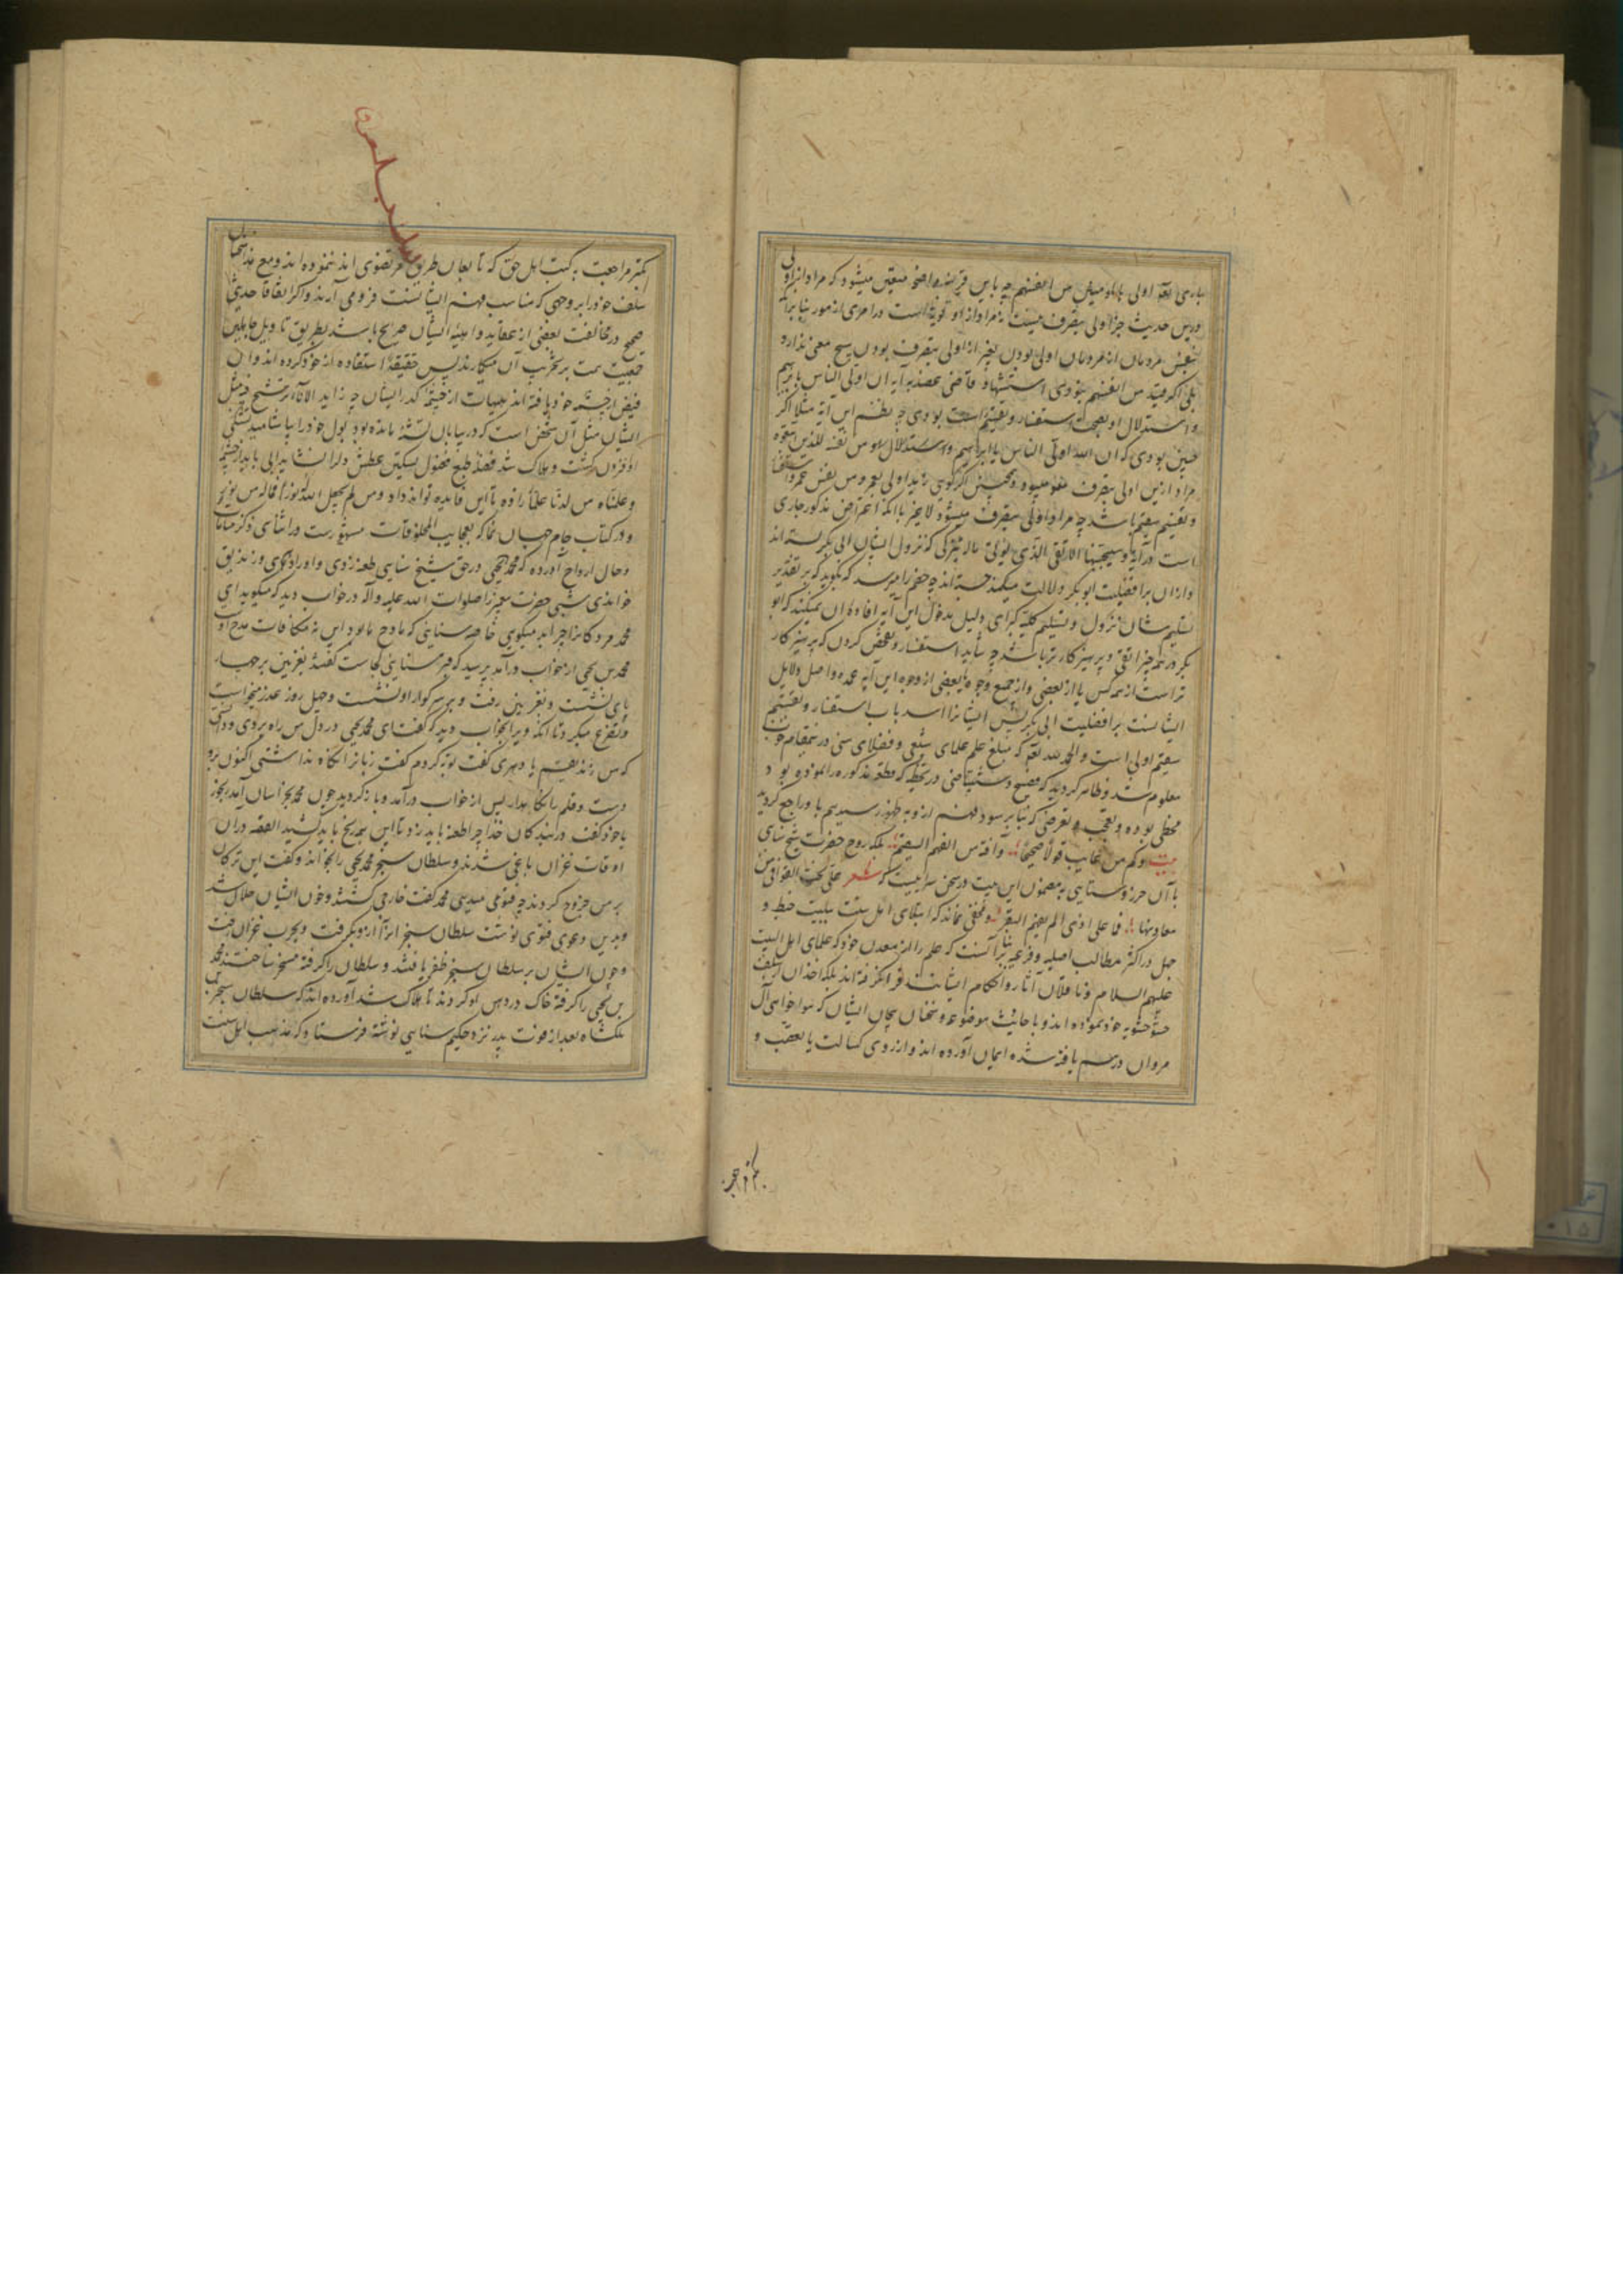 باری تعالی اولی بالمؤمنین من انفسهم چه باین قرینه واضحه متعین میشود که مراد از اولی
درین حدیث جز اولی بتصرف نیست نه مراد از او تواند بود در امری از امور بنابر آنکه
بنفس مردمان از مردمان اولی بودن بغیر از اولی بتصرف بودن هیچ معنی ندارد
بلی اگر قید من انفسهم نبودی استشهاد قاضی عضد به آیه ان اولی الناس بابراهیم
و استدلال او بصحت استفسار و تقسیم است بودی چه نظم این آیه مثلا اگر
چنین بودی که ان الله اولی الناس بابراهیم و استدلال او من نفسه للذین اتبعوه
مراد ازین اولی بتصرف مفهوم میبود و همچنین اگر گوئی زید اولی بعمرو من نفس عمرو استفسار
و تقسیم سقیم باشد چه مراد اولی بتصرف میشود لا غیر با آنکه اعتراض مذکور جاری
است در آیه و سیجنبها الاتقی الذی یؤتی ماله یتزکی که نزول ایشان ابی بکر بسته اند
و از آن بر افضلیت ابوبکر دلالت میکند جسته اند چه خصم را میرسد که بگوید که بر تقدیر
تسلیم شان نزول و تسلیم کلیه کبرای دلیل مدخول این آیه افاده آن نمیکند که ابو
بکر در همه چیز اتقی و پرهیزکارتر باشد چه شاید استفسار و تفحص کردن که پرهیزکار
تر است از همه کس یا از بعضی و از جمیع وجوه یا بعضی از وجوه این آیه عمده و اصل دلایل
ایشانست بر افضلیت ابی بکر پس ایشانرا سد باب استفسار و تقسیم
سقیم اولی است و الحمد لله تعالی که مبلغ علم علمای شیعی و فضلای سنی درین مقام خوب
معلوم شد و ظاهر گردید که فضیح و شنیع قاضی در تخطیه که قطعه مذکوره را نموده بود
مخطی بوده و تعجب و تعرضی که بنابر سوء فهم ازو به ظهور رسید هم باو راجع گردید
بیت وکم من عایب قولا صحیحا وآفته من الفهم السقیم بلکه روح حضرت شیخ سنای
با آن خرد روستایی به مضمون این بیت در سخن سراییست که شعر علی نحت القوافی من
معادنها فما علی اذی الم یفهم البقر و مخفی نماند که ابتلای اهل سنت ببلیت خبط و
جهل در اکثر مطالب اصلیه و فرعیه بنابر آنست که علم را از معدن خود که علمای اهل البیت
علیهم السلام و ناقلان آثار و احکام ایشانند فرا نگرفته اند بلکه اخذ آن از سلف
حشو حشویه خود نموده اند و باحادیث موضوعه و سخنان بیجان ایشان که هواخواهی آل
مروان درهم یافته شده ایمان آورده اند و از روی کسالت یا تعصب و
کمتر مراجعت
کمتر مراجعت به کتب اهل حق که تابعان طریق مرتضوی اند ننموده اند و مع هذا سخنان
سلف خود را بر وجهی که مناسب فهم ایشانست فرو می آرند و اگر اتفاقا حدیث
صحیح در مخالفت بعضی از عقاید واهیه ایشان صریح باشد بطریق تاویل جاهلین
حمیت همت بر تخریب آن میگمارند پس حقیقة استفاده از خود کرده اند و آن
فیض از چشمه خود یافته اند هیهات از چشمه کدر ایشان چه زاید الاناء یترشح فمثل
ایشان مثل آن شخص است که در بیابان تشنه مانده بود بول خود را بیاشامید تشنگی
او افزون گشت و هلاک شد
و علمناه من لدنا علما زاده تا این فایده تواند داد ومن لم یجعل الله له نورا فماله من نور
و در کتاب جام جهان نما که بعجایب المخلوقات مشهور است در اثنای ذکر منامات
و حال ارواح آورده که محمد یحیی در حق شیخ سنایی طعنه زدی و او را دهری و زندیق
خواندی شبی حضرت پیغمبر را صلوات الله علیه وآله در خواب دید که میگوید ای
محمد مردکانرا چرا بد میگویی خاصه سنایی که مادح ما بود این نه مکافات مدح او
محمد بن یحیی از خواب درآمد پرسید که قبر سنایی کجاست گفتند بغزنین برخاست
پای ننشست و بغزنین رفت و بر سر گور او نشست و چهل روز عذر میخواست
و تضرع میکرد تا آنکه ویرا بخواب دید که گفت ای محمد یحیی در دل من راه بردی و دانستی
که من زندیقم یا دهری گفت توبه کردم گفت زبانرا نگاه نداشتی اکنون برو
دست و قلم را نگاه دار پس از خواب درآمد و بازگردید چون محمد بخراسان آمد هنوز
با خود گفت در بندگان خدا چرا طعنه باید زد تا این همه رنج باید کشید القصه در آن
اوقات غزان باغی شدند و سلطان سنجر محمد یحیی را بخواند و گفت این ترکان
بر من خروج کردند چه فتوی میدهی محمد گفت خارجی گشتند و خون ایشان حلال شد
و بدین دعوی فتوی نوشت سلطان سنجر آنرا ازو بگرفت و بحرب غزان رفت
و چون ایشان بر سلطان سنجر ظفر یافتند و سلطان را گرفته مسخر ساختند محمد
بن یحیی را گرفته خاک در دهن او کردند تا هلاک شد آورده اند که سلطان سنجر بن
ملکشاه بعد از فوت پدر نزد حکیم سنایی نوشته فرستاد که مذهب اهل سنت